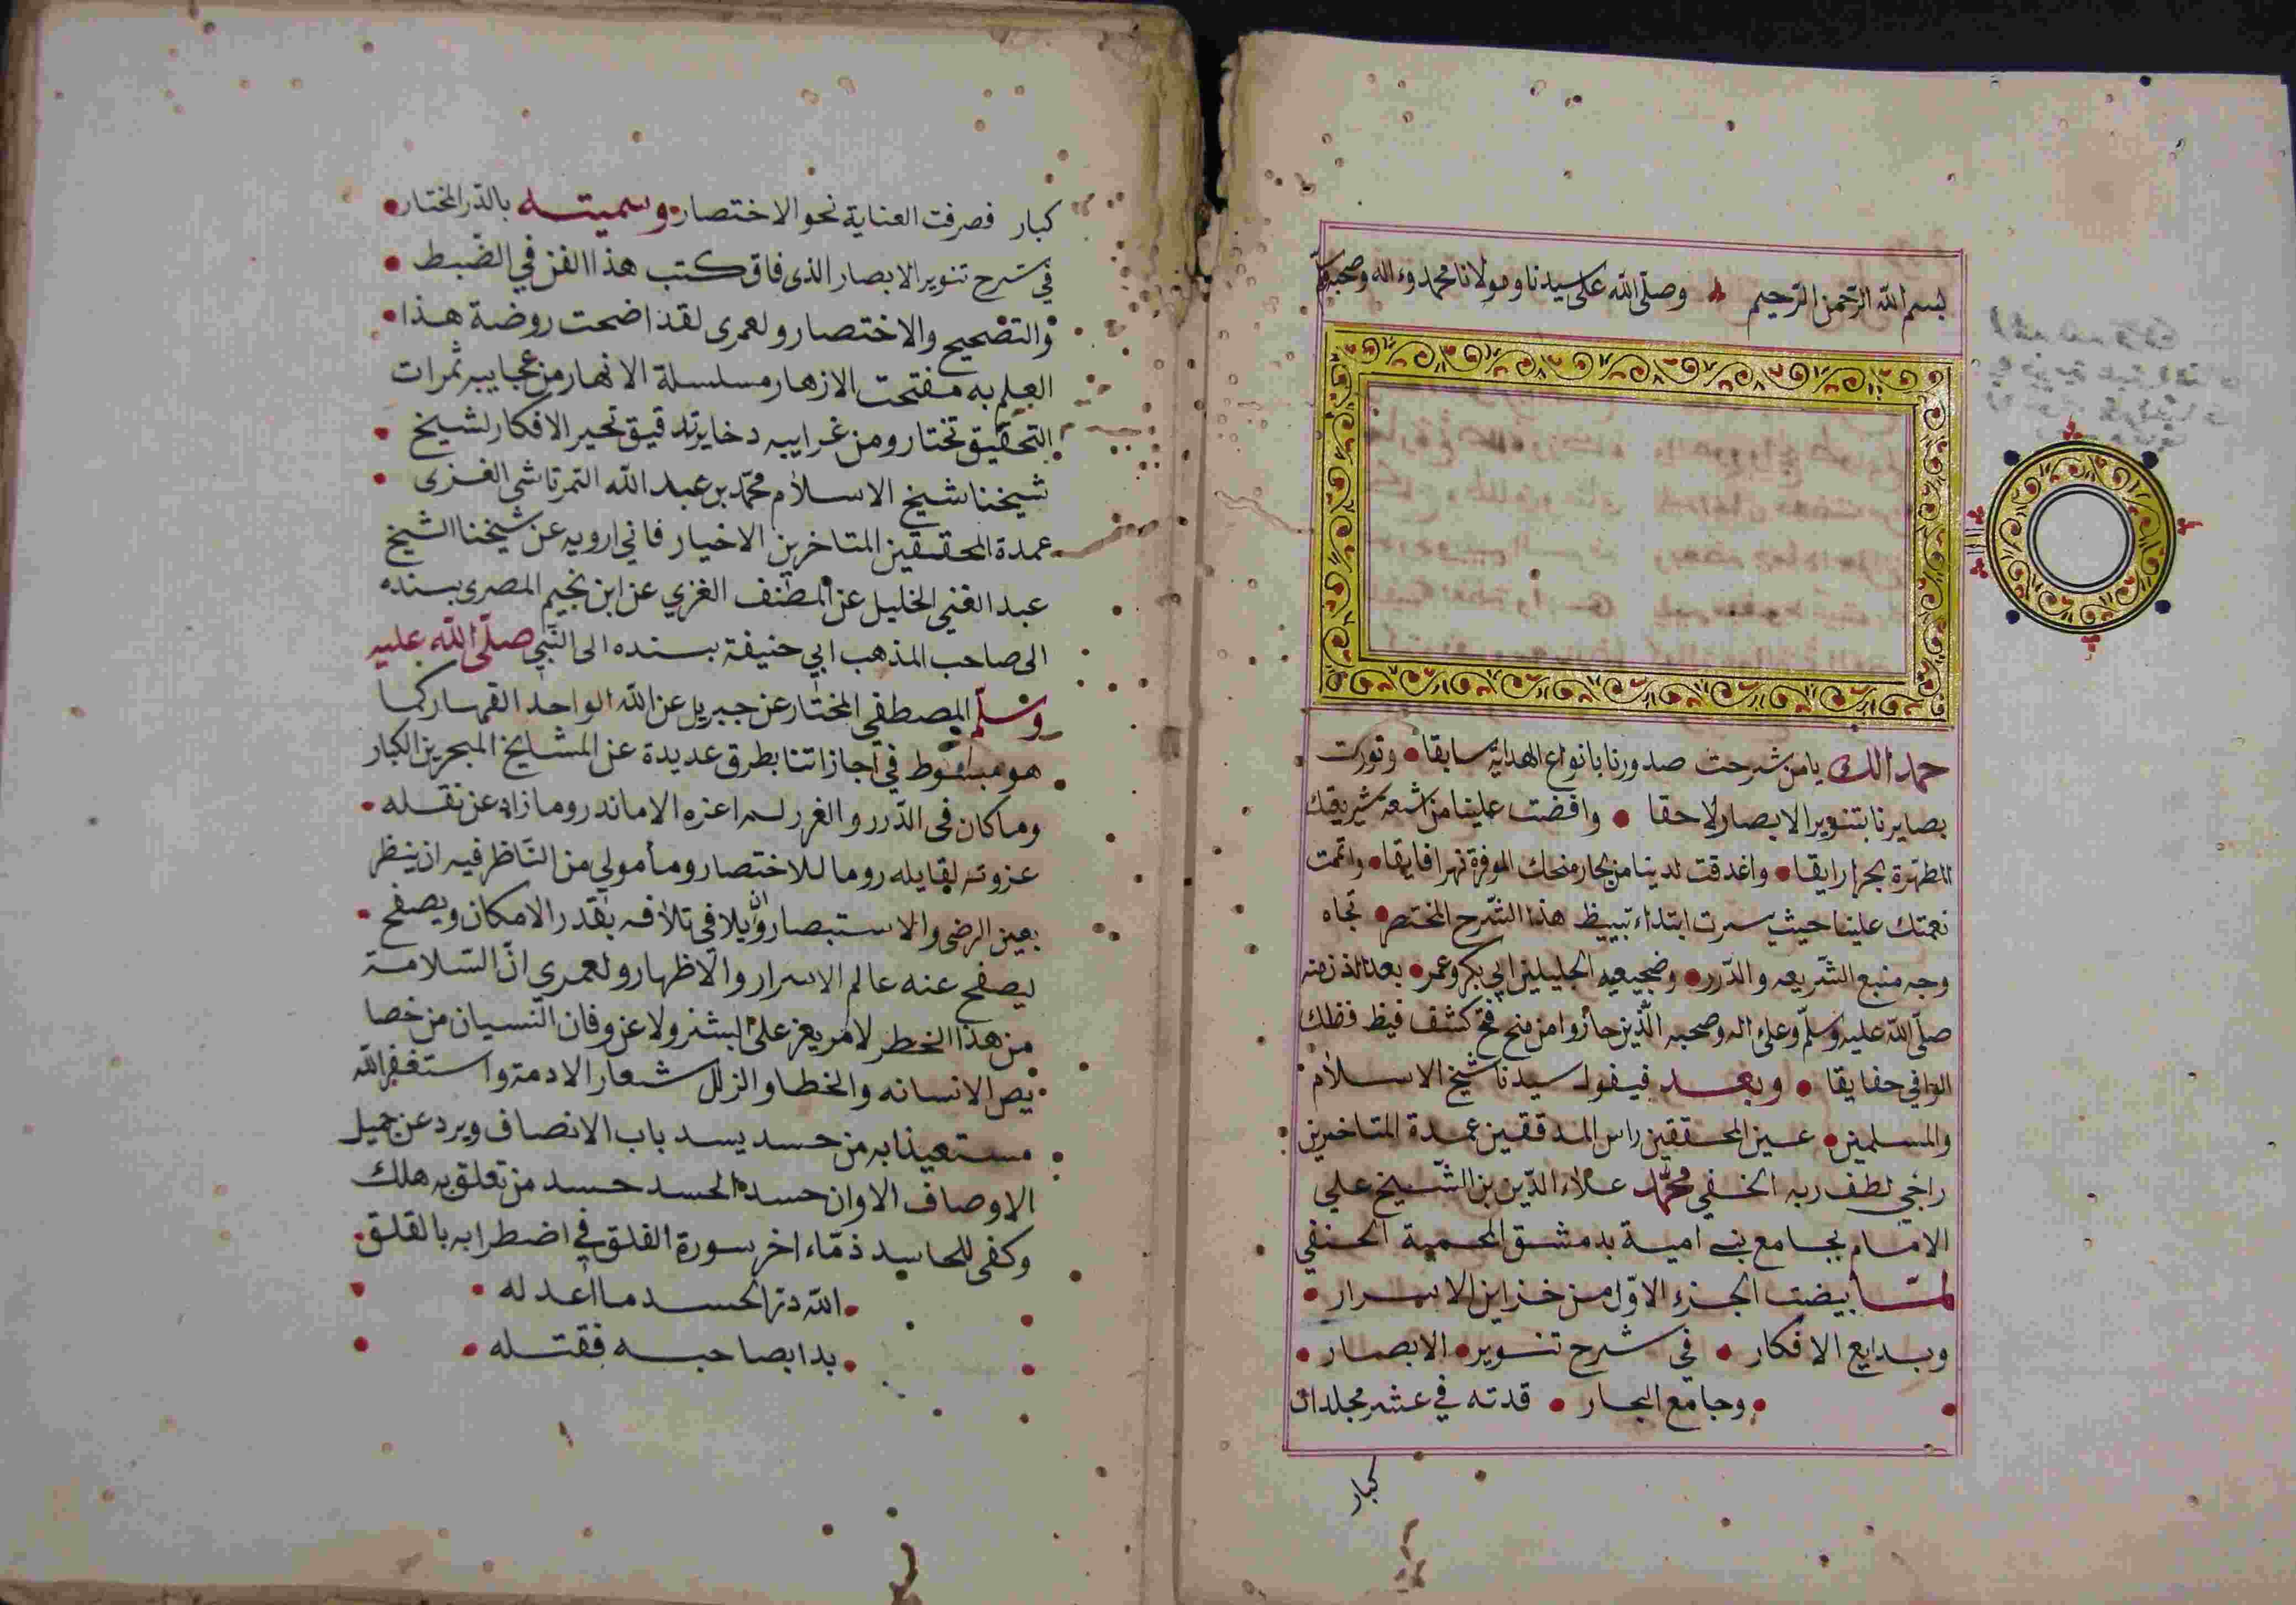 بسم الله الرحمن الرحيم وصلى الله على سيدنا ومولانا محمد وءاله وصحبه وسلم
حمدا لك يا من شرحت صدورنا بانواع الهداية سابقا • ونورت
بصايرنا بتنوير الابصار لاحقا • وافضت علينا من اشعة شريعتك
المطهرة بحرا رايقا • واغدقت لدينا من بحار منحك الموفرة نهرا فايقا • واتممت
نعمتك علينا حيث يسرت ابتداء تبييظ هذا الشرح المختصر • تجاه
وجه منبع الشريعه والدرر • وضجيعيه الجليلين ابي بكر وعمر • بعد الاذن منه
صلى الله عليه وسلم وعلى اله وصحبه الذين حازوا من منح فتح كشف فيظ فظلك
الوافي حقايقا • وبعد فيقول سيدنا شيخ الاسلام
والمسلمين • عين المحققين راس المدققين عمدة المتاخرين
راجي لطف ربه الخفي محمد علاء الدين بن الشيخ علي
الامام بجامع بني امية بدمشق المحمية الحنفي
لما بيضت الجزء الاول من خزاين الاسرار •
وبدايع الافكار • في شرح تنوير • الابصار •
• وجامع البحار • قدته في عشر مجلدات
كبار
كبار فصرفت العناية نحو الاختصار • وسميته بالدر المختار •
في شرح تنوير الابصار الذى فاق كتب هذا الفن في الضبط •
والتصحيح والاختصار ولعمرى لقد اضحت روضة هذا •
العلم به مفتحت الازهار مسلسلة الانهار من عجايبه ثمرات
التحقيق تختار ومن غرايبه دخاير تدقيق تحير الافكار لشيخ •
شيخنا شيخ الاسلام محمد بن عبد الله التمرتاشى الغزى •
عمدة المحققين المتاخرين الاخيار فاني ارويه عن شيخنا الشيخ
عبد الغني الخليل عن المصنف الغزي عن ابن نجيم المصرى بسنده
الى صاحب المذهب ابي حنيفة بسنده الى النبي صلى الله عليه
وسلم المصطفى المختار عن جبريل عن الله الواحد القهار كما
هو مبسوط في اجازاتنا بطرق عديدة عن المشايخ المبحرين الكبار
وما كان فى الدرر والغرر لم اعزه الا ما ندر وما زاد عن نقله •
عزوته لقايله روما للاختصار ومأمولي من الناظر فيه ان ينظر
بعين الرضى والاستبصار وان يلافى تلافه بقدر الامكان ويصفح •
ليصفح عنه عالم الاسرار والاظهار ولعمرى ان السلامة
من هذا الخطر لامر يعز على البشر ولا عزو فان النسيان من خصا
يص الانسانه والخطا والزلل شعار الادمة واستغفر الله
مستعيذا به من حسد يسد باب الانصاف ويرد عن جميل
الاوصاف الا وان حسد الحسد حسد من تعلق به هلك
وكفى للحاسد ذماء اخر سورة الفلق في اضطرابه بالقلق
• الله در الحسد ما اعدله •
• بدا بصاحبه فقتله •